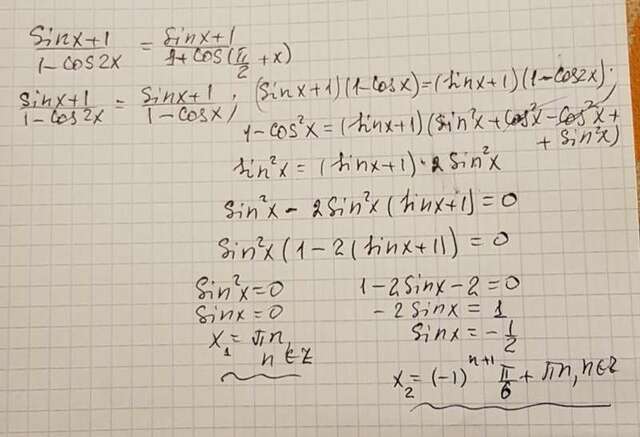 (sinx+1)/(1-cos2x) = (sinx+1)/(1+cos(π/2+x))
(sinx+1)/(1-cos2x) = (sinx+1)/(1-cosx); (sinx+1)(1-cosx)=(sinx+1)(1-cos2x);
1-cos²x=(sinx+1)(sin²x+cos²x-cos²x+
+sin²x)
sin²x=(sinx+1)·2sin²x
sin²x-2sin²x(sinx+1)=0
sin²x(1-2(sinx+1))=0
sin²x=0 1-2sinx-2=0
sinx=0 -2sinx=1
x₁=πn, sinx=-1/2
n∈Z
x₂=(-1)ⁿ⁺¹ π/6+πn, n∈Z